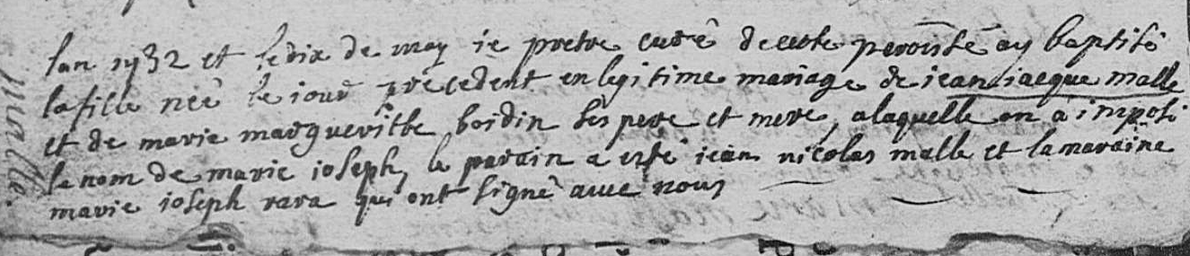 lan 1732 et le dix de may ie pretre curé de cette paroisse ay baptisé
la fille née le iour precedent en legitime mariage de iean iacque malle
et de marie margueritte boidin ses pere et mere, a laquelle on a imposé
le nom de marie ioseph, le parain a esté iean nicolas malle et la maraine
marie ioseph rara qui ont signé avec nous